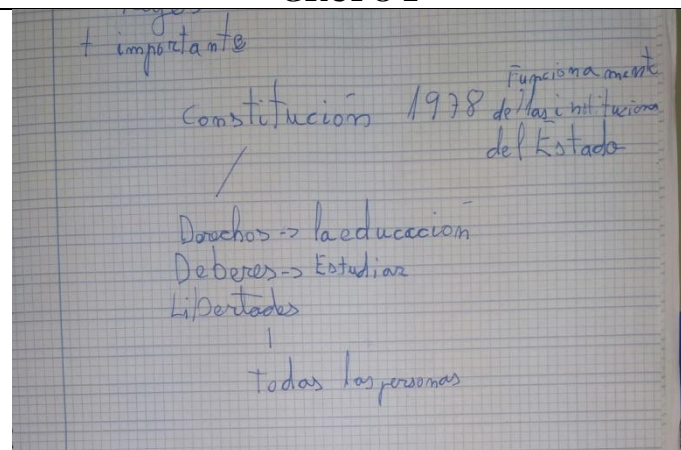 + importante
Funcionament
Constitución 1978 de las institucions
del Estado
Derechos -> la educación
Deberes -> Estudiar
Libertades
todas las personas